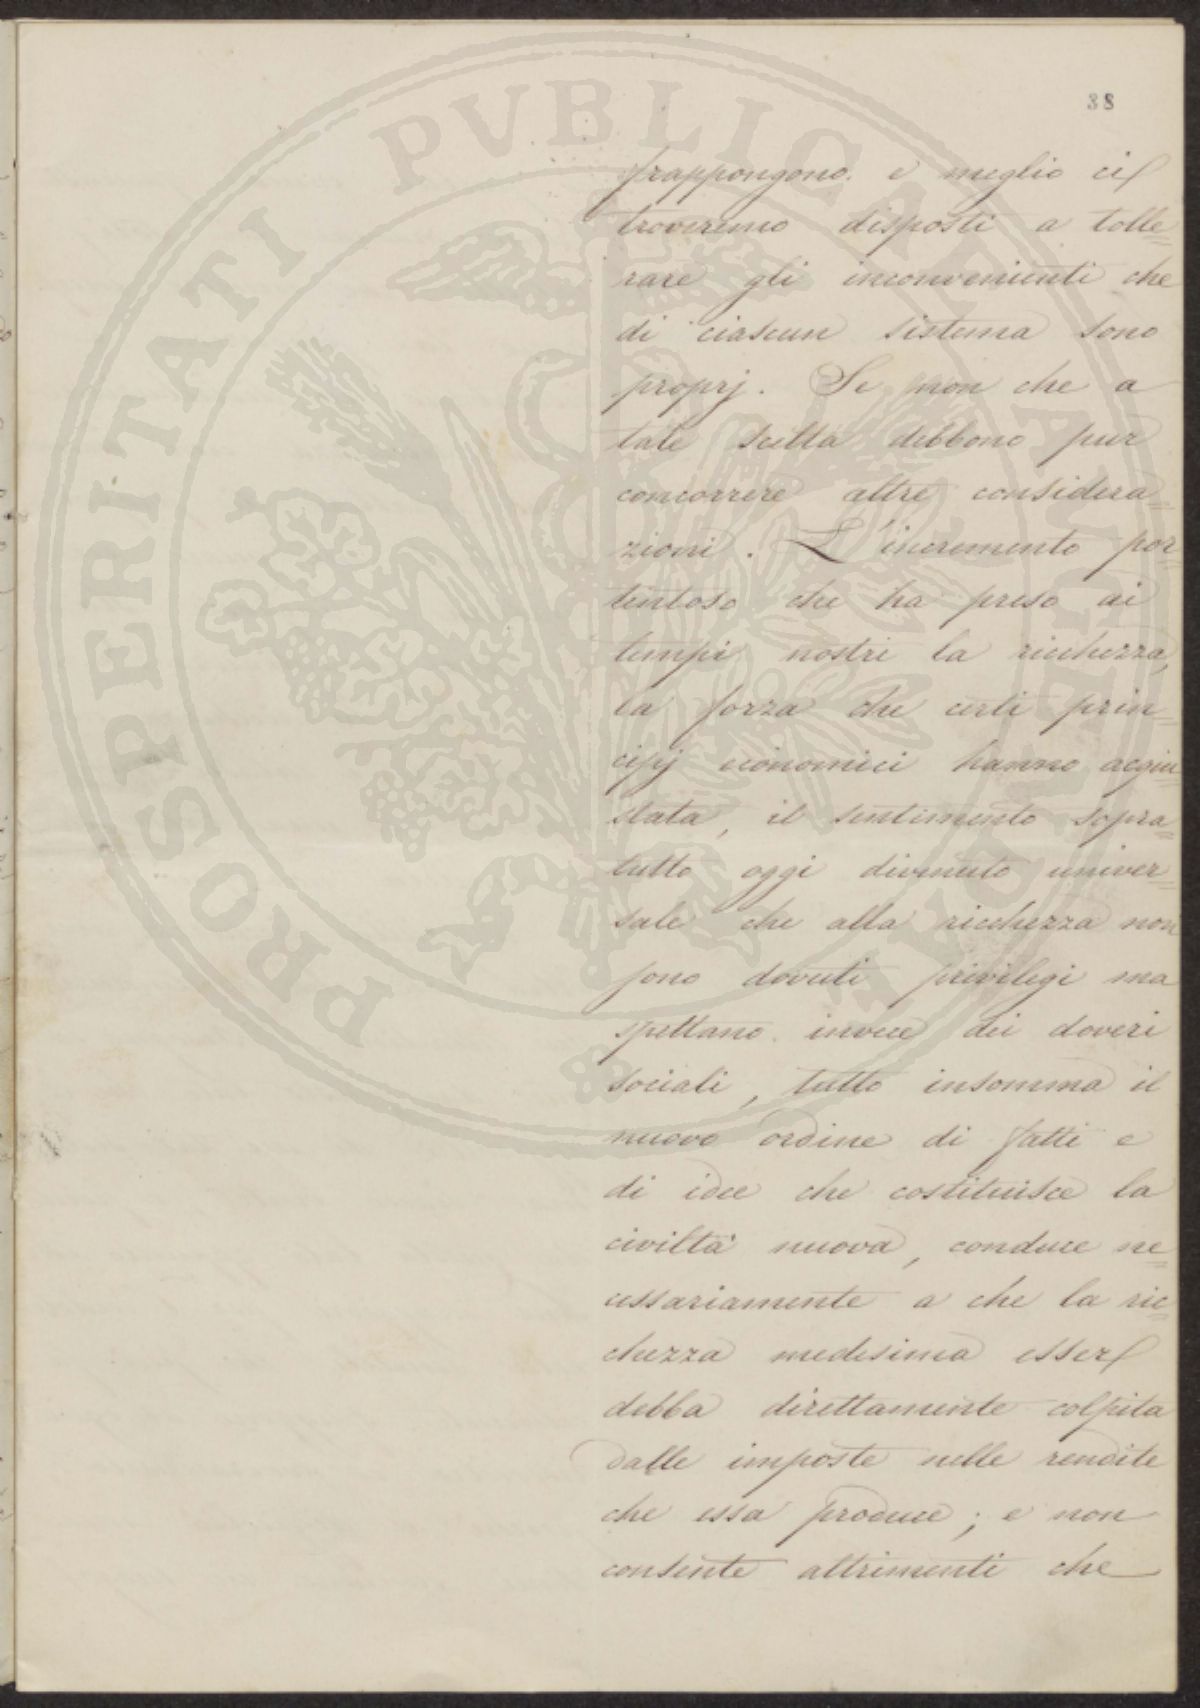 38
frappongono. e meglio ci
troveremo disposti a tolle=
rare gli inconvenienti che
di ciascun sistema sono
proprj. Se non che a
tale scelta debbono pur
concorrere altre considera=
zioni. L'incremento por=
tentoso che ha preso ai
tempi nostri la ricchezza,
la forza che certi prin=
cipj economici hanno acqui=
stata, il sentimento sopra=
tutto oggi divenuto univer=
sale che alla ricchezza non
sono dovuti privilegi ma
spettano invece dei doveri
sociali, tutto insomma il
nuovo ordine di fatti e
di idee che costituisce la
civiltà nuova, conduce ne=
cessariamente a che la ric=
chezza medesima esser
debba direttamente colpita
dalle imposte nelle rendite
che essa produce; e non
consente altrimenti che
PROSPERITATI PVBLICAE AVGENDAE